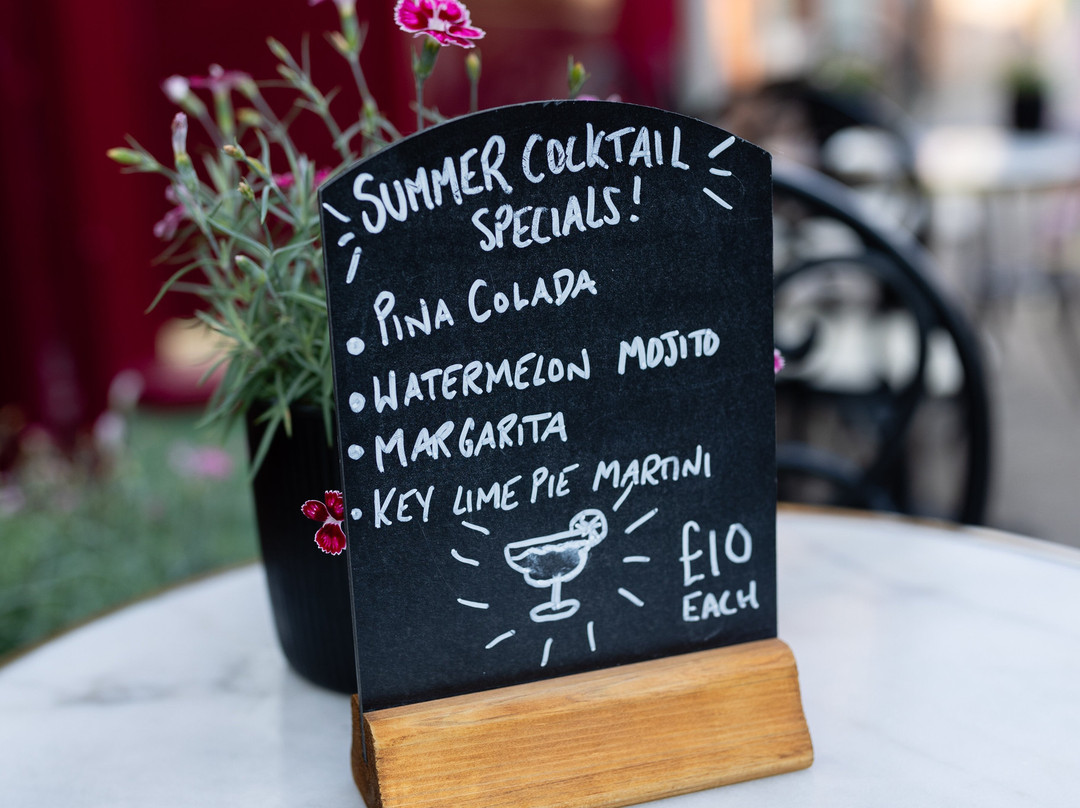 SUMMER COCKTAIL
SPECIALS!
• PINA COLADA
• WATERMELON MOJITO
• MARGARITA
• KEY LIME PIE MARTINI
£10
EACH